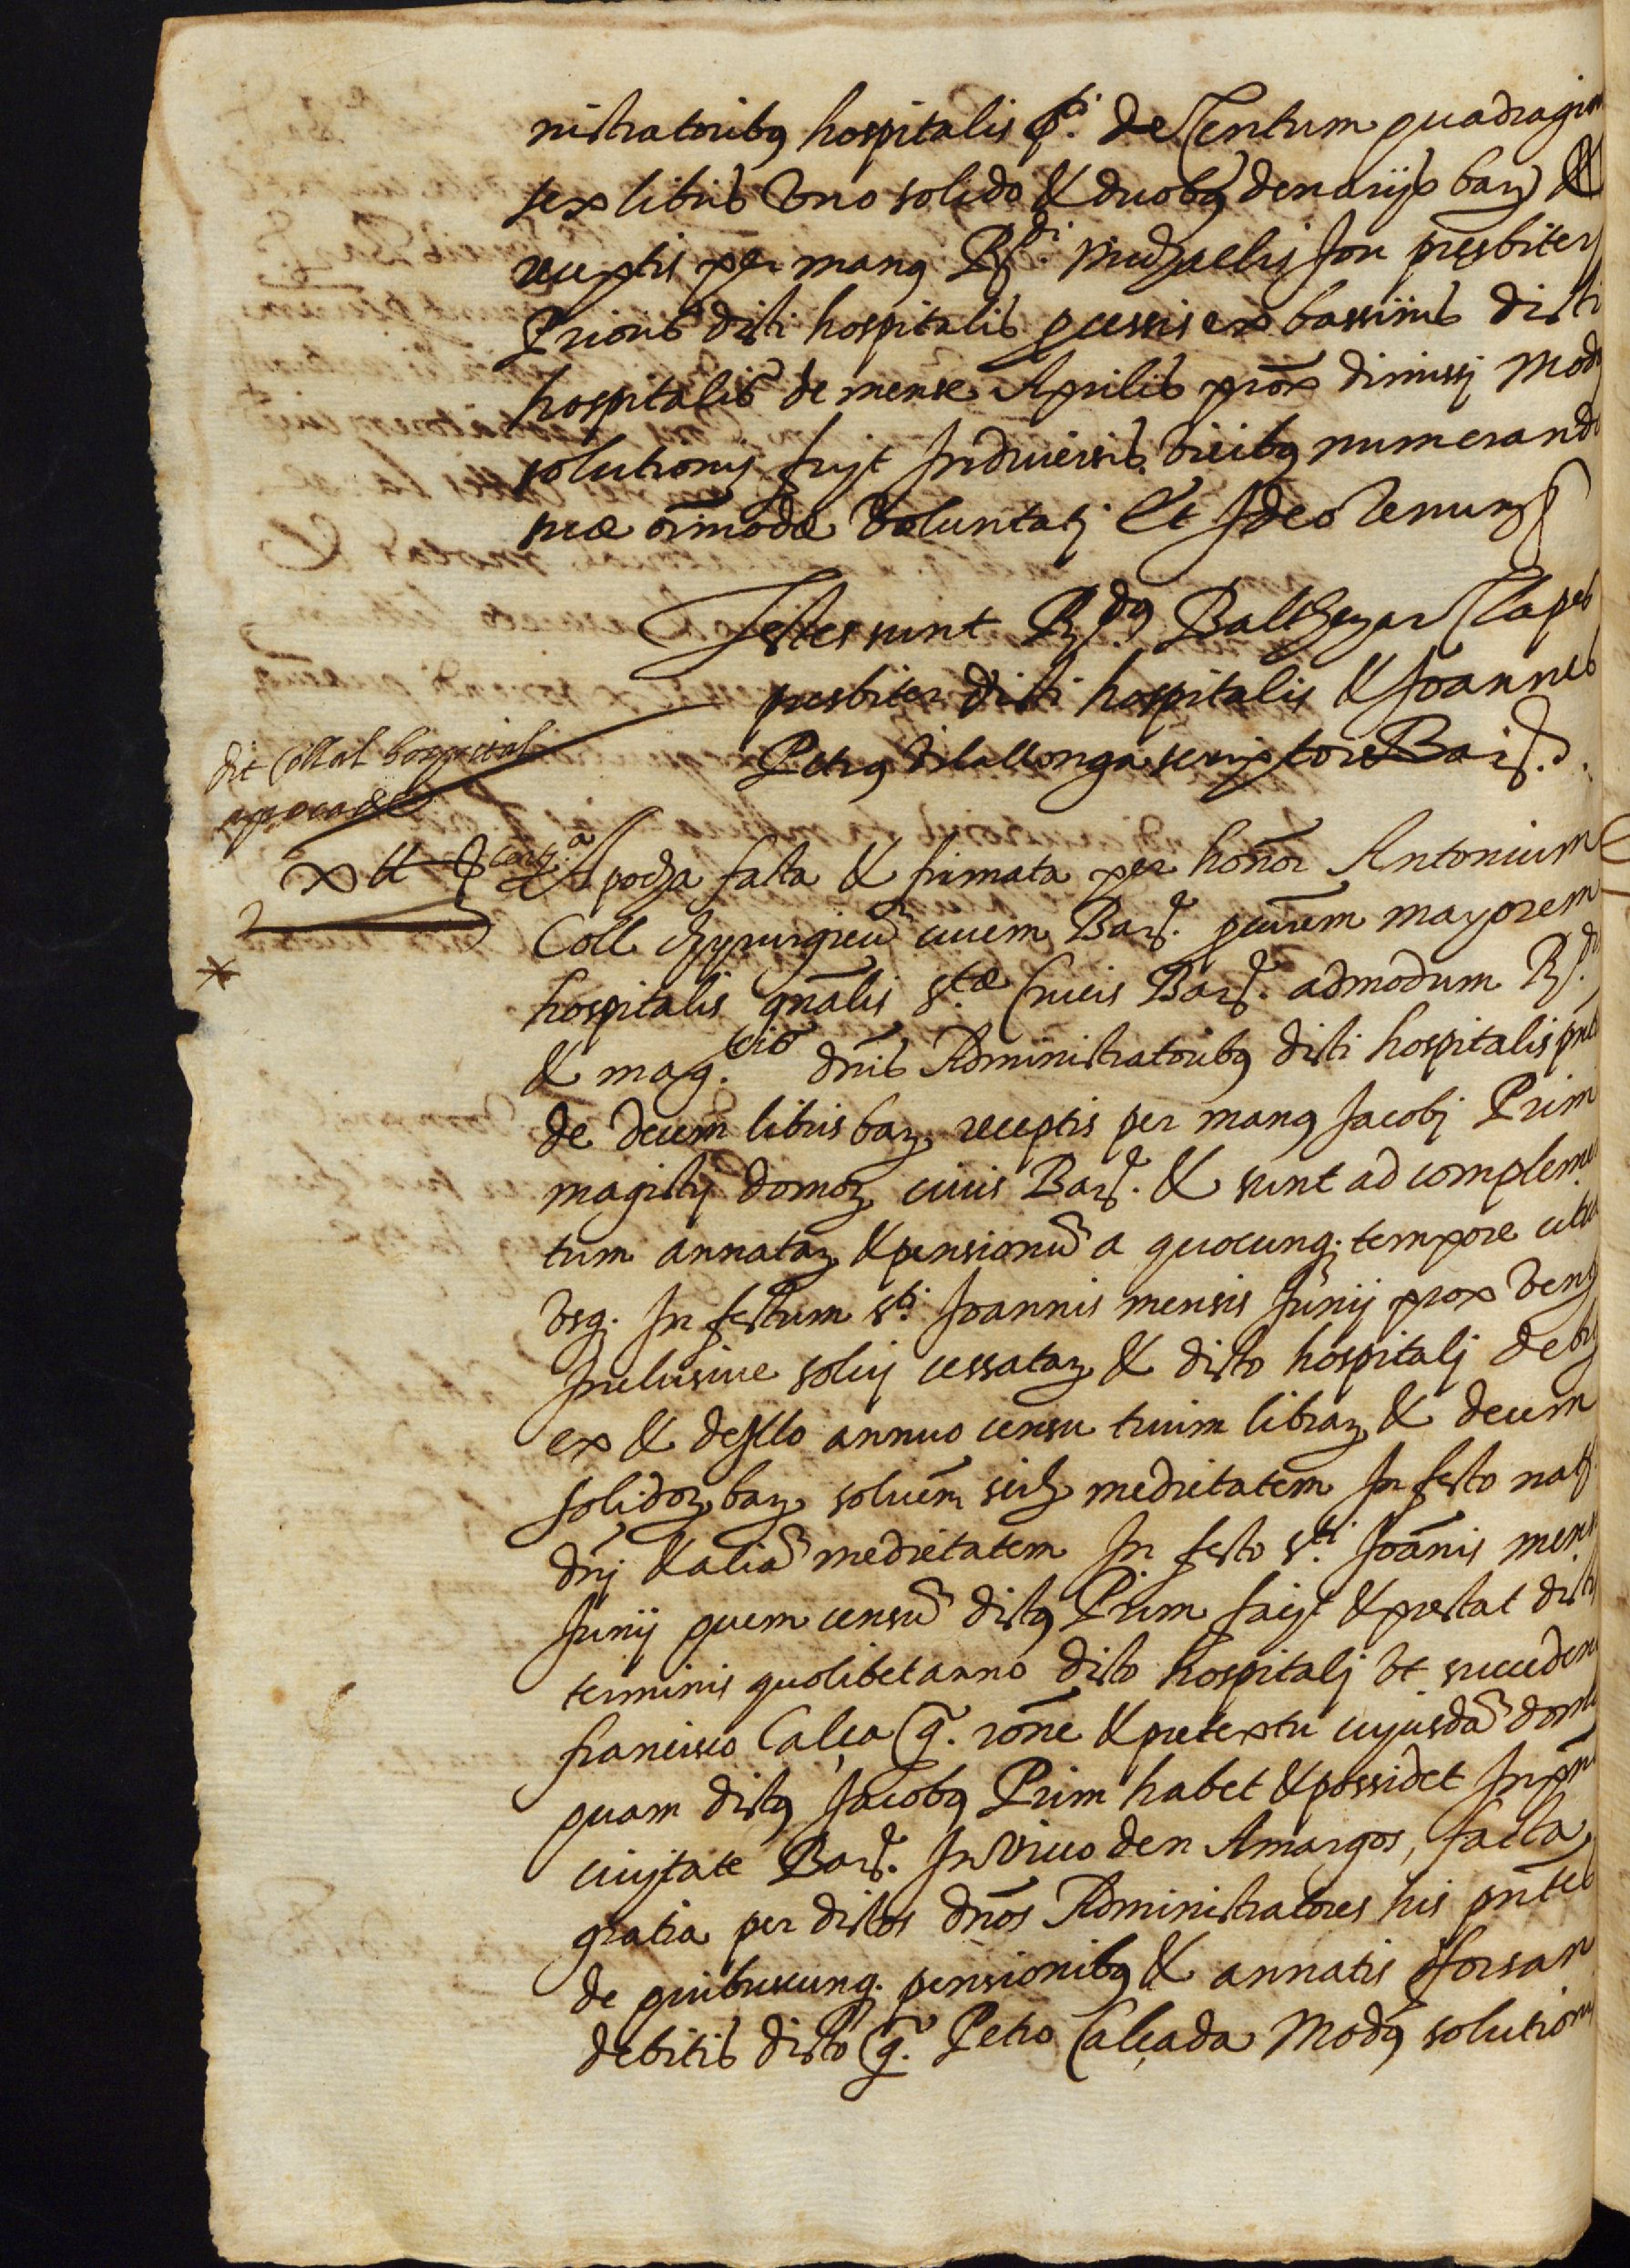 nistratoribꝰ hospitalis p.ti de Centum quadragin
sex libris Vno solido & duobꝰ denarijs barꝫ &
receptis per manꝰ R.di Michaelis Jou presbiteri
Prioris dicti hospitalis processis ex bassinis dicti
hospitalis de mense Aprilis prox dimissi Modꝰ
solutionis fuit In diuersis vicibꝰ numerando
meæ oīmodæ Voluntatj Et Ideo renunꝫ
Testes sunt R.dꝰ Balthezar Clapes
presbiter dicti hospitalis & Joannes
Petrꝰ Vilallonga scriptores Barꝫ.
dit Collal hospital
apoca
x ll
Apocha facta & firmata per honōr Antonium
Coll chyrurgicū ciuem Barꝫ. procurēm mayorem
hospitalis gnālis S.tæ Crucis Barꝫ. admodum R.dis
& mag.cis dnīs Administratoribꝰ dicti hospitalis pnt
de decem libris barꝫ receptis per manꝰ Jacobj Prim
magistrj domoꝝ ciuis Barꝫ. & sunt ad complemen
tum annataꝝ & pensionū a quocunq. tempore citra
Vsq. In festum S.ti Joannis mensis Junij prox Venꝫ
Inclusiue soluj cessataꝝ & dicto hospitalj debꝫ
ex & de illo annuo censu trium libraꝝ & decem
solidoꝝ barꝫ soluēm scilꝫ medietatem In festo natꝫ.
dnj & aliā medietatem In festo S.ti Joānis mens
Junij quem censū dictꝰ Prim facit & prestat dictis
terminis quolibet anno dicto hospitalj Vt succeden
francisco Calça q̄. rōne & pretextu cujusdā domꝰ
quam dictꝰ Jacobꝰ Prim habet & possidet In pnī
ciuitate Barꝫ. In vico den Amargos, facta
gratia per dictos dnōs Administratores his pntēs
de quibuscunq. pensionibꝰ & annatis forsan
debitis dicto q̄. Petro Calçada Modꝰ solutionis